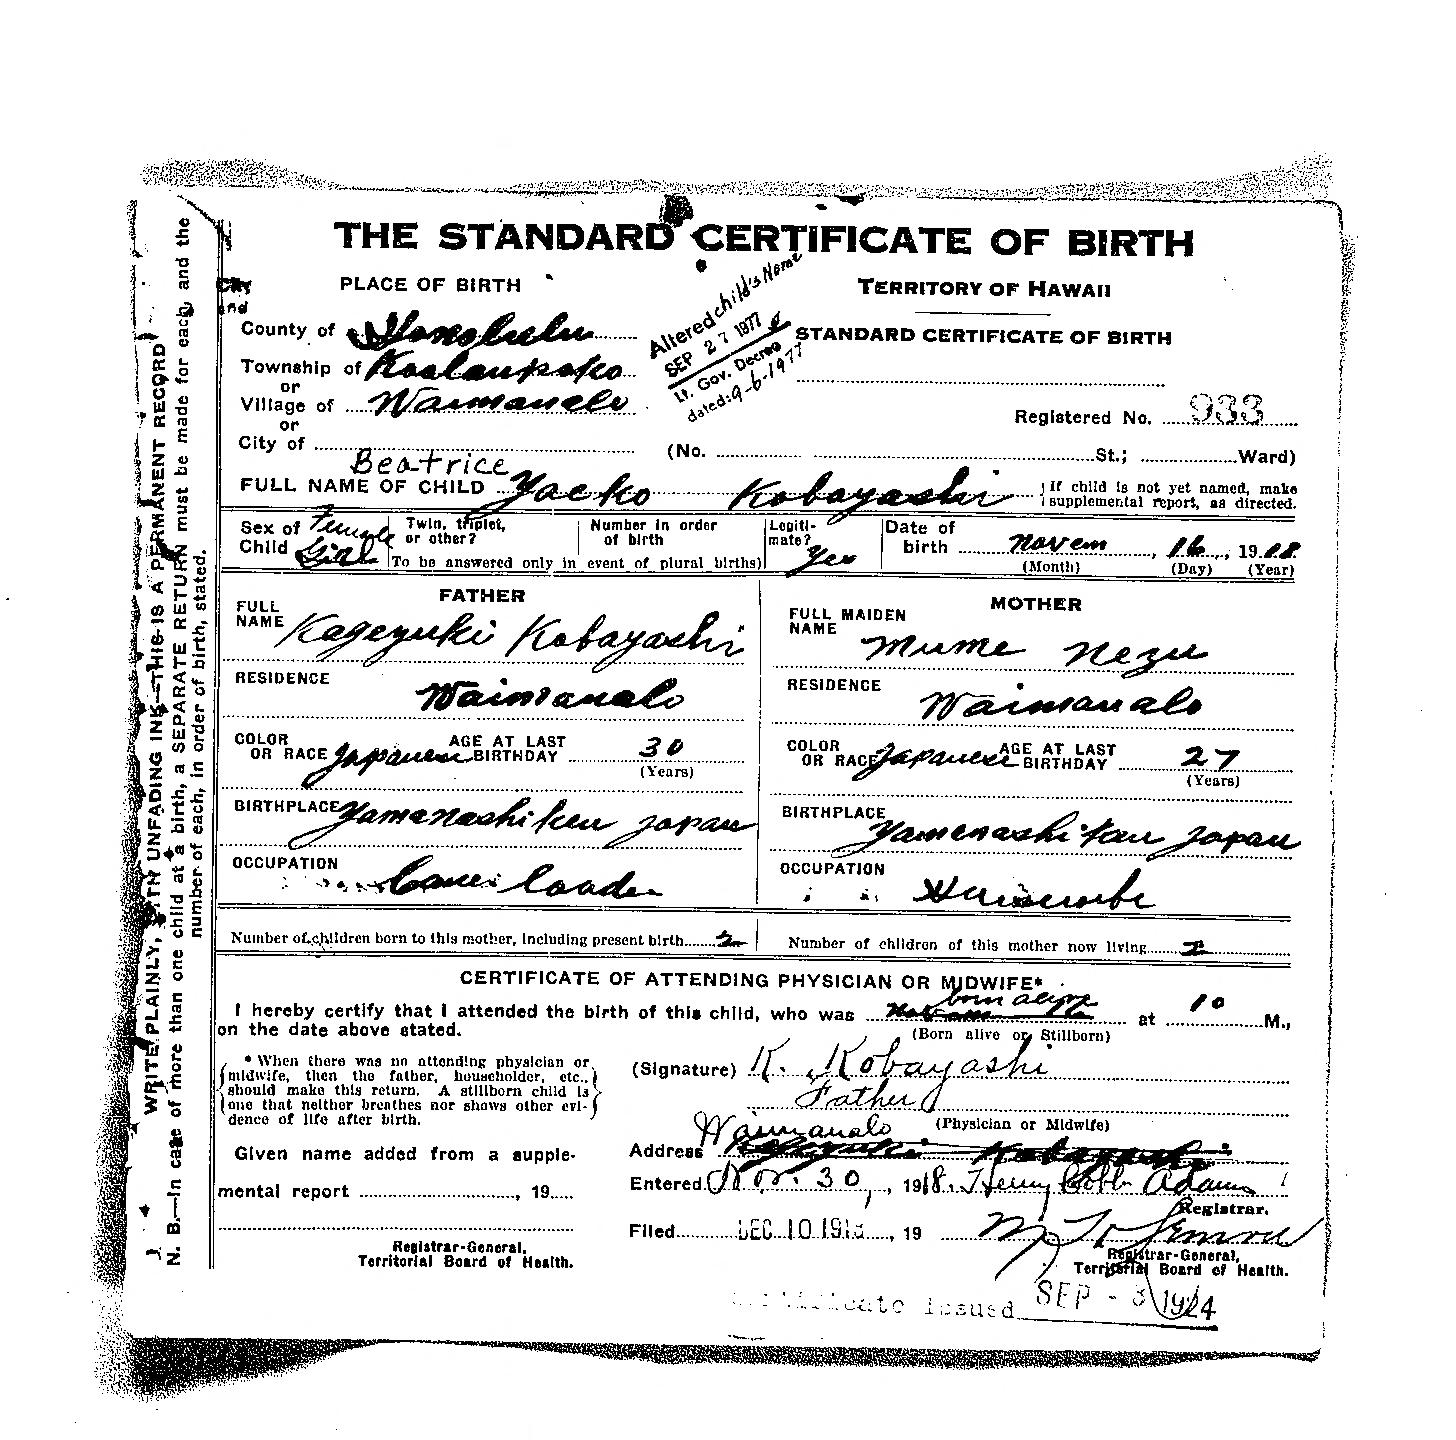 THE STANDARD CERTIFICATE OF BIRTH
City
and
PLACE OF BIRTH
TERRITORY OF HAWAII
Altered child's Name
SEP 27 1977
Lt. Gov. Decree
dated: 9-6-1977
County of Honolulu
STANDARD CERTIFICATE OF BIRTH
Township of Koolaupoko
or
Village of Waimanalo
or
Registered No. 933
City of
(No. St.; Ward)
Beatrice
FULL NAME OF CHILD Yaeko Kobayashi
If child is not yet named, make
supplemental report, as directed.
Sex of Child Female Girl
Twin, triplet,
or other?
Number in order
of birth
To be answered only in event of plural births)
Legiti-
mate? Yes
Date of
birth Novem, 16, 1918
(Month) (Day) (Year)
FATHER
FULL
NAME Kageyuki Kobayashi
RESIDENCE Waimanalo
COLOR
OR RACE Japanese
AGE AT LAST
BIRTHDAY 30
(Years)
BIRTHPLACE Yamanashi ken Japan
OCCUPATION Cane loader
MOTHER
FULL MAIDEN
NAME Mume Nezu
RESIDENCE Waimanalo
COLOR
OR RACE Japanese
AGE AT LAST
BIRTHDAY 27
(Years)
BIRTHPLACE Yamanashi Ken Japan
OCCUPATION
Number of children born to this mother, including present birth 2
Number of children of this mother now living 2
CERTIFICATE OF ATTENDING PHYSICIAN OR MIDWIFE*
born alive
I hereby certify that I attended the birth of this child, who was at 10 M.,
on the date above stated.
(Born alive or Stillborn)
* When there was no attending physician or
midwife, then the father, householder, etc.,
should make this return. A stillborn child is
one that neither breathes nor shows other evi-
dence of life after birth.
(Signature) K. Kobayashi
Father
(Physician or Midwife)
Waimanalo
Address Kageyuki Kobayashi
Given name added from a supple-
mental report , 19
Registrar-General,
Territorial Board of Health.
Entered Nov. 30, 1918. Henry Cobb Adams
Registrar.
Filed DEC 10 1918, 19
Registrar-General,
Territorial Board of Health.
Certificate issued SEP - 3 1924
WRITE PLAINLY, WITH UNFADING INK—THIS IS A PERMANENT RECORD
N. B.—In case of more than one child at a birth, a SEPARATE RETURN must be made for each, and the
number of each, in order of birth, stated.